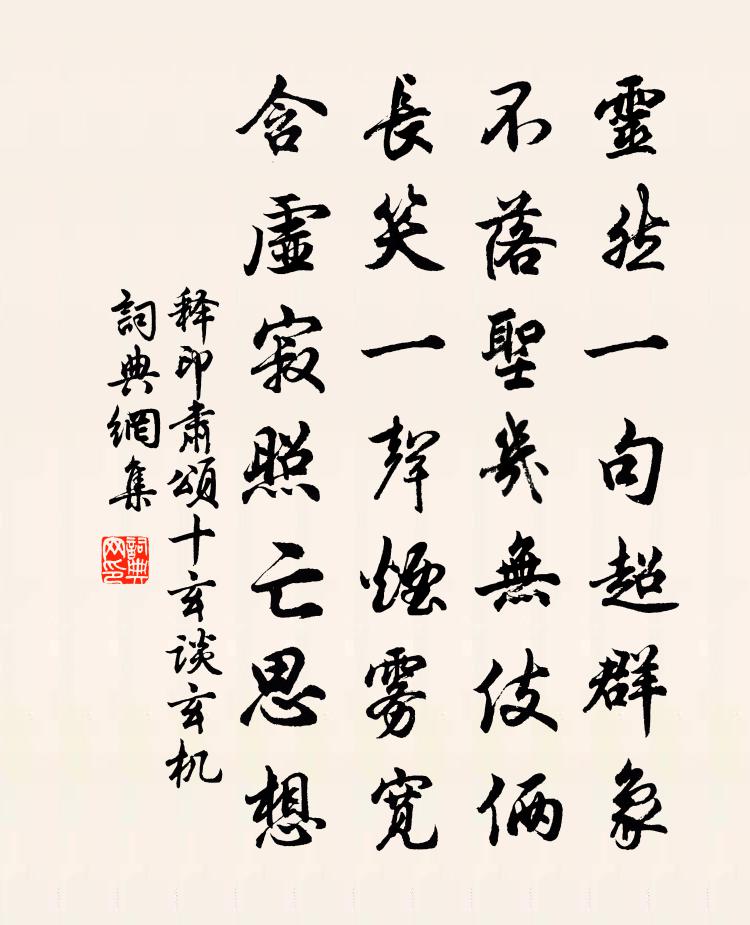 靈然一句超群象
不落聖凡無伎倆
長笑一聲煙雾寬
含虛寂照亡思想
释印肅頌十玄谈玄机
詞典網集
詞典网印